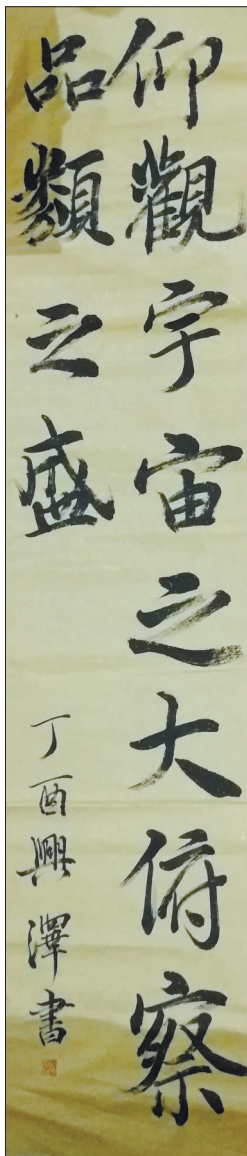 仰觀宇宙之大俯察
品類之盛
丁酉興澤書